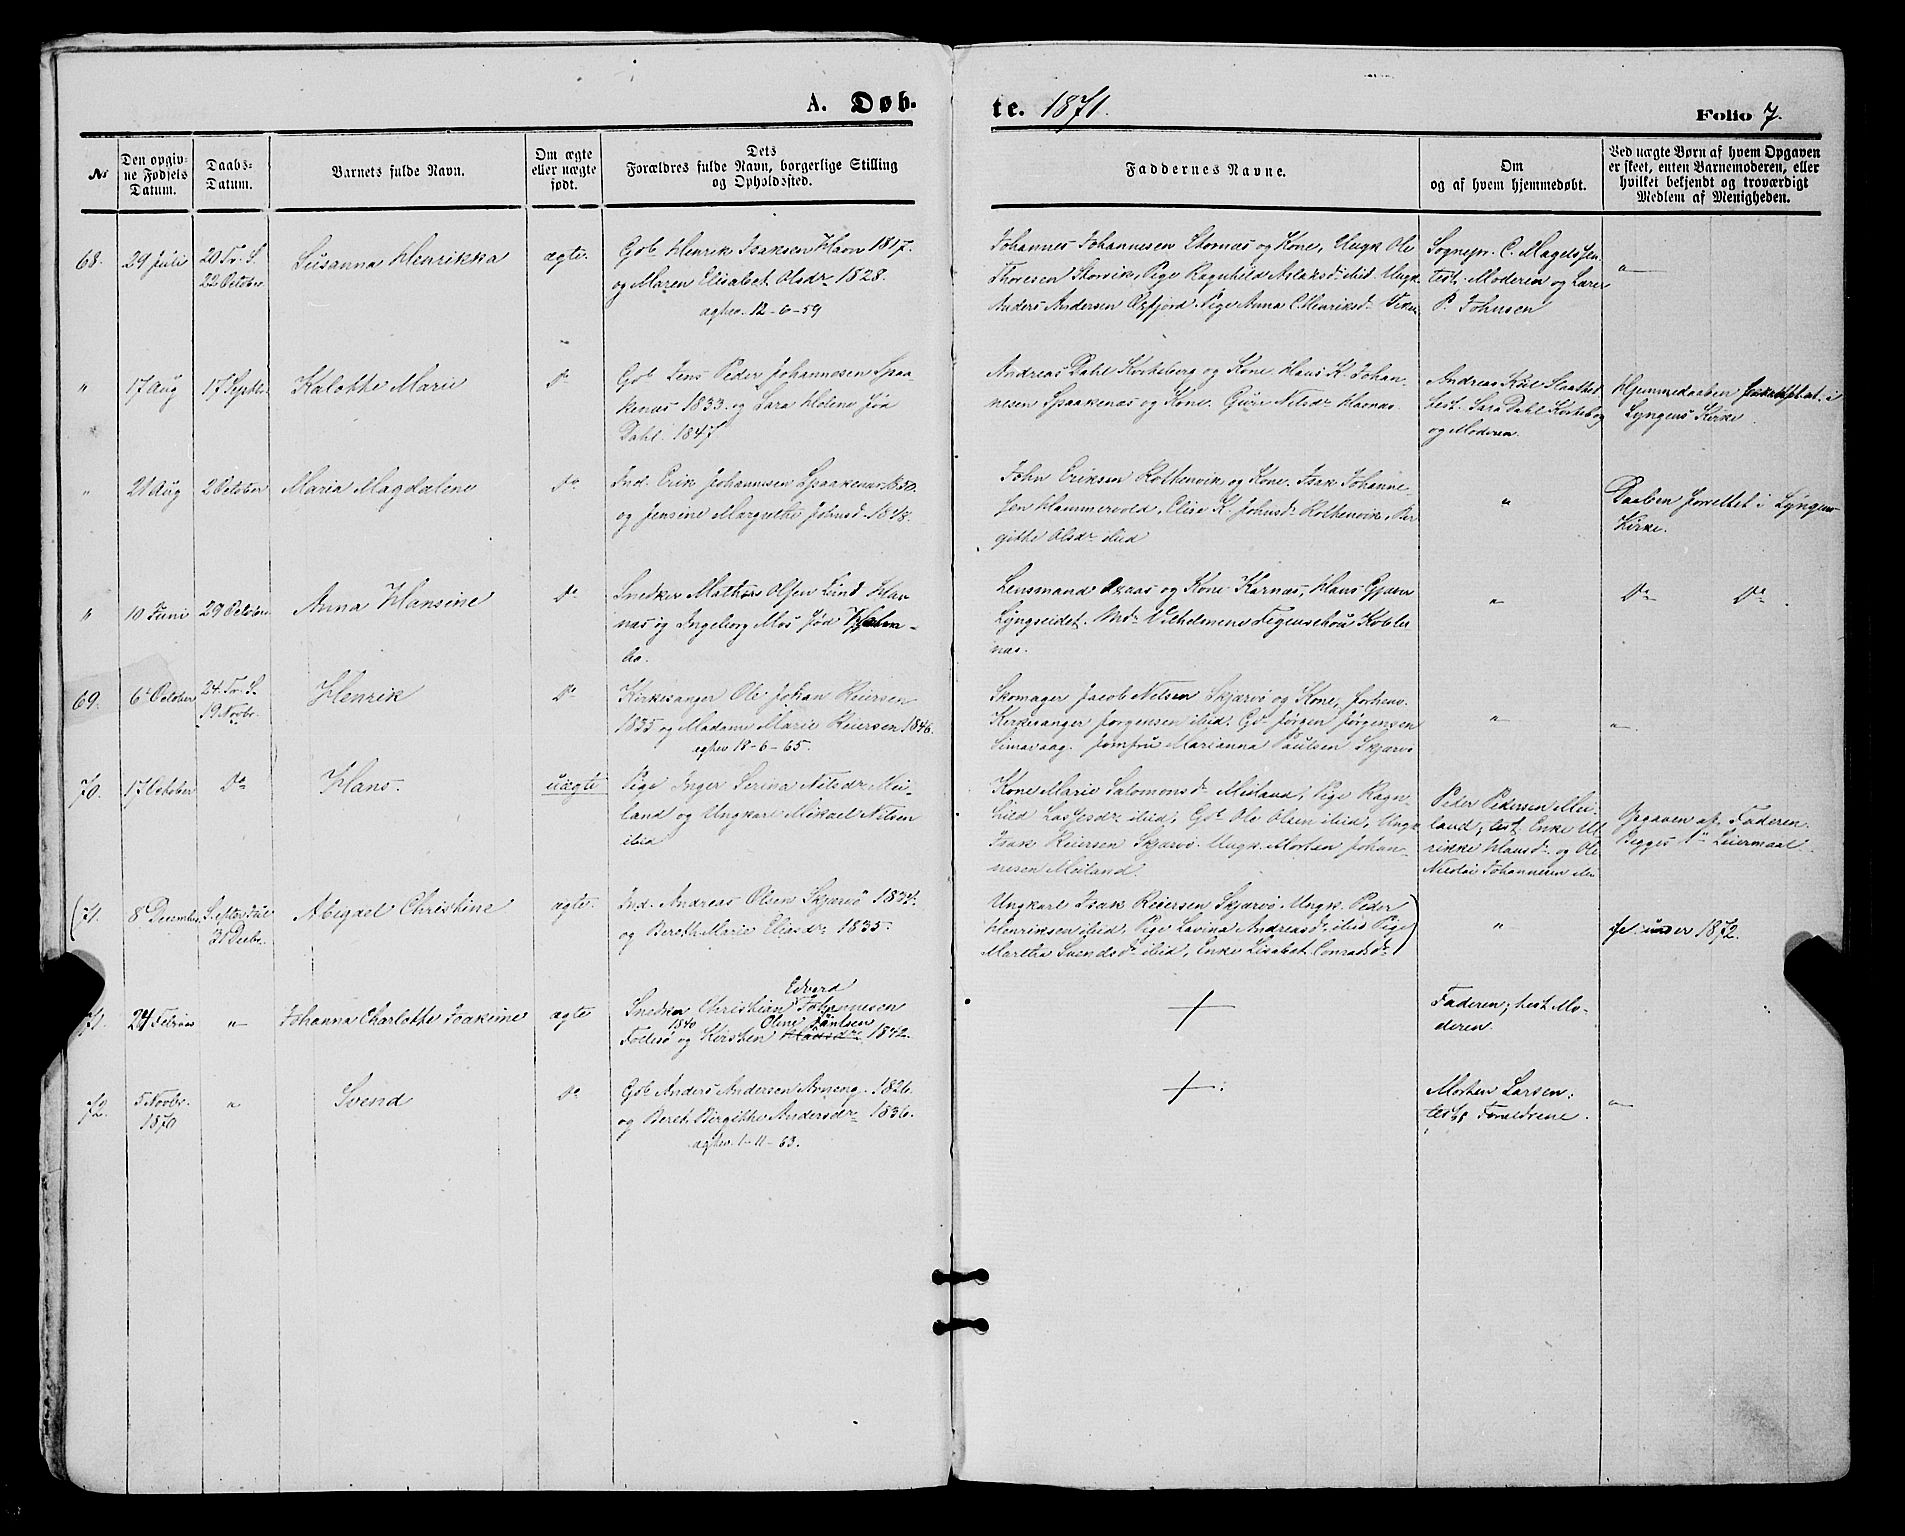 A. Døb-
te. 1871.
Folio 7.
No
Den opgiv-
ne Fødsels
Datum.
Daabs-
Datum.
Barnets fulde Navn.
Om ægte
eller uægte
født.
Dets
Forældres fulde Navn, borgerlige Stilling
og Opholdssted.
Faddernes Navne.
Om
og af hvem hjemmedøbt.
Ved uægte Børn af hvem Opgaven
er skeet, enten Barnemoderen, eller
hvilket bekjendt og troværdigt
Medlem af Menigheden.
68.
29 Juli
20 Tr. S.
22 October
Susanna Henrikka
ægte.
Gbr. Henrik Isaksen Havn 1817.
og Maren Elisabet Olsdr 1828.
aghv. 12-6-59
Johannes Johannesen Stornæs og Kone, Ungk Ole
Thoresen Storvik, Pige Ragnhild Aslaksdr ibid. Ungk.
Anders Andersen Oxfjord. Pige Anna C. Henriksdr
Sognepr. C. Magelssen
test. Moderen og Lærer
P. Johnsen
"
"
17 Aug
17 Septbr.
Kalotte Marie
do
Gbr Jens Peder Johannesen Spaa-
kenæs 1833 og Sara Helene Jøa
Dahl. 1847
Andreas Dahl Koksberg og Kone. Hans K. Johan-
nesen Spaakenæs og Kone. Nilsdr
Andreas
test. Sara Dahl
og Moderen.
Hjemmedaaben i
Lyngens Kirke
"
21 Aug
2 October
Maria Magdalene
do
Ind. Erik Johannesen Spaakenæs 1850.
og Jensine Margrethe Johnsd. 1848.
John Eriksen Rotsenvik og Kone. Isak Johanne-
sen Hammervold, Elise K. Johnsdr Rotsenvik, Bir-
gitthe Olsdr ibid
"
Daaben forrettet i Lyngens
Kirke.
"
10 Juni
29 October
Anna Hansine
do
Snedker Mathis Olsen Lind Hav-
næs og Ingeborg Mos Jød
bo.
Lensmand og Kone Karnæs, Hans Gjæver
Lyngseidet. Md. Vilhelmine Figenschou Kobber-
næs.
"
do do
69.
6te October
24. Tr. S.
19 Novbr.
Henrik
do
Kirkesanger Ole Johan Reiersen
1835 og Madame Marie Reiersen 1846.
aghv 18-6-65.
Skomager Jacob Nilsen Skjærvø og Kone, forhenv.
Kirkesanger Jørgensen ibid. Gbr Jørgen Jørgensen
Simavaag. Jomfru Marianna Paulsen Skjærvø
"
"
70.
17 October
do
Hans.
uægte
Pige Inger Serina Nilsdr Mei-
land og Ungkarl Mikael Nilsen
ibid
Kone Marie Salomonsdr Meiland; Pige Ragn-
hild Lassesdr ibid; Gbr Ole Olsen ibid; Ungk
Isak Reiersen Skjærvø. Ungk. Morten Johan-
nesen Meiland.
Peder Pedersen Mei-
land; test. Enke Ul-
rikke Hansdr og Ole
Nicolai Johannesen
Opgaven af Faderen.
Begges 1ste Leiermaal
(71.
8 December
S. efter Jul
31 Decbr.
Abigael Christine
ægte.
Ind. Andreas Olsen Skjærvø 1834.
og Bereth Marie Eliasdr 1835.
Ungkarl Isak Reiersen Skjærvø. Ungk. Peder
Henriksen ibid. Pige Lavina Andreasdr ibid Pige)
Martha Svendsdr ibid, Enke Lisabet Conradsdr
"
under 1872.
71.
24 Februar
"
Johanna Charlotte Joakime
ægte
Edvard
Snedker Christian Johannesen
1840 Oline Jentsen
Follesø og Kirsten 1842.
+
Faderen; test. Mo-
deren.
72.
5 Novbr.
1870
"
Svend
do
Gbr Anders Andersen Arneng. 1826.
og Beret Bergitthe Andersdr 1836.
aghv. 1-11-63.
+.
Morten Larsen;
test. Forældrene.
"